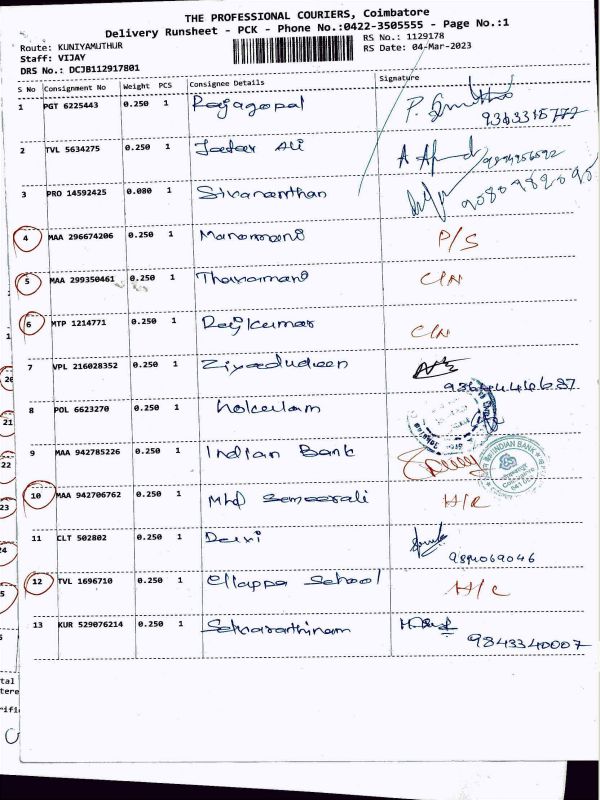 THE PROFESSIONAL COURIERS, Coimbatore
Delivery Runsheet - PCK - Phone No.:0422-3505555 - Page No.:1
Route: KUNIYAMUTHUR
RS No.: 1129178
Staff: VIJAY
RS Date: 04-Mar-2023
DRS No.: DCJB112917801
S No Consignment No Weight PCS Consignee Details Signature
1 PGT 6225443 0.250 1 Rajagopal
2 TVL 5634275 0.250 1 Jafar Ali
3 PRO 14592425 0.080 1 Sivananthan
4 MAA 296674206 0.250 1 Manonmani P/S
5 MAA 299350461 0.250 1 Thavamani C/N
6 MTP 1214771 0.250 1 Rajkumar C/N
7 VPL 216028352 0.250 1 Ziyaudeen
8 POL 6623270 0.250 1
9 MAA 942785226 0.250 1 Indian Bank
INDIAN BANK
10 MAA 942706762 0.250 1 Mhd Sameerali
11 CLT 502802 0.250 1
12 TVL 1696710 0.250 1 Ellappa School
13 KUR 529076214 0.250 1
9843340007